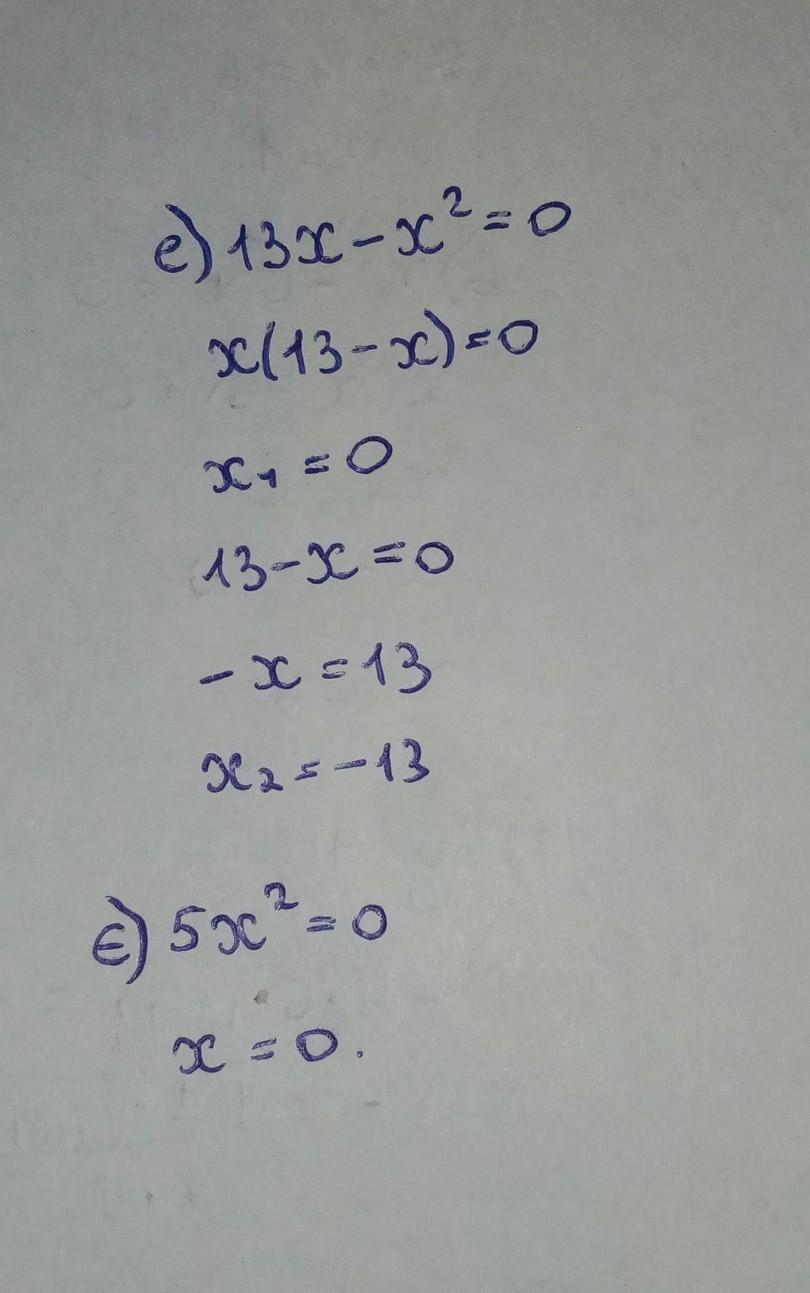 е) 13x-x²=0
x(13-x)=0
x₁=0
13-x=0
-x=13
x₂=-13
є) 5x²=0
x=0.